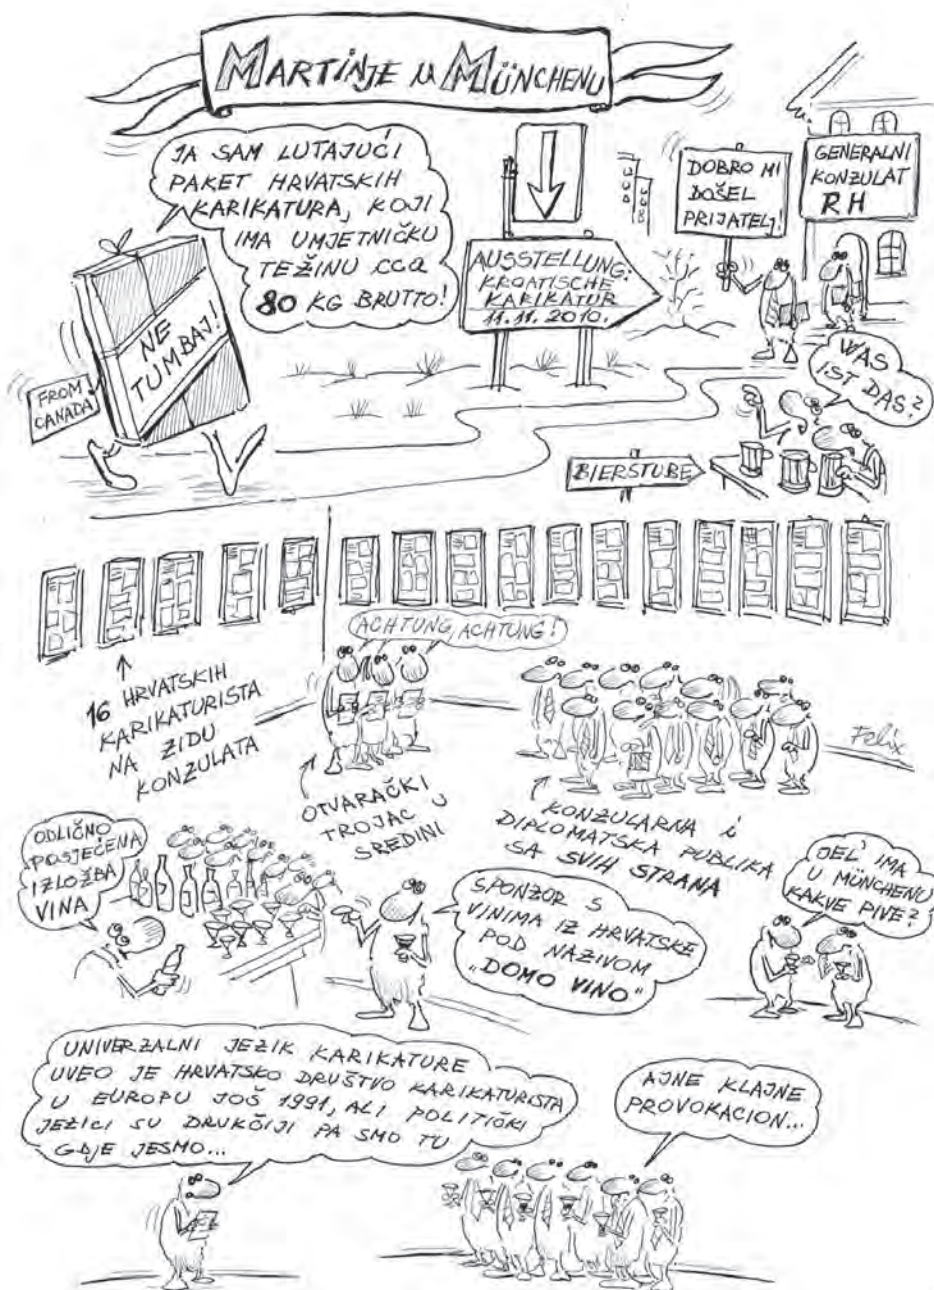 MARTINJE U MÜNCHENU
JA SAM LUTAJUĆI
PAKET HRVATSKIH
KARIKATURA, KOJI
IMA UMJETNIČKU
TEŽINU cca
80 KG BRUTTO!
NE
TUMBAJ!
FROM
CANADA!
AUSSTELLUNG:
KROATISCHE
KARIKATUR
11.11.2010.
DOBRO MI
DOŠEL
PRIJATELJ!
GENERALNI
KONZULAT
RH
WAS
IST DAS?
BIERSTUBE
16 HRVATSKIH
KARIKATURISTA
NA ZIDU
KONZULATA
ACHTUNG, ACHTUNG!
OTVARAČKI
TROJAC U
SREDINI
KONZULARNA i
DIPLOMATSKA PUBLIKA
SA SVIH STRANA
Felix
ODLIČNO
POSJEĆENA
IZLOŽBA
VINA
SPONZOR S
VINIMA IZ HRVATSKE
POD NAZIVOM
„DOMO VINO"
JEL' IMA
U MÜNCHENU
KAKVE PIVE?
UNIVERZALNI JEZIK KARIKATURE
UVEO JE HRVATSKO DRUŠTVO KARIKATURISTA
U EUROPU JOŠ 1991, ALI POLITIČKI
JEZICI SU DRUKČIJI PA SMO TU
GDJE JESMO...
AJNE KLAJNE
PROVOKACION...